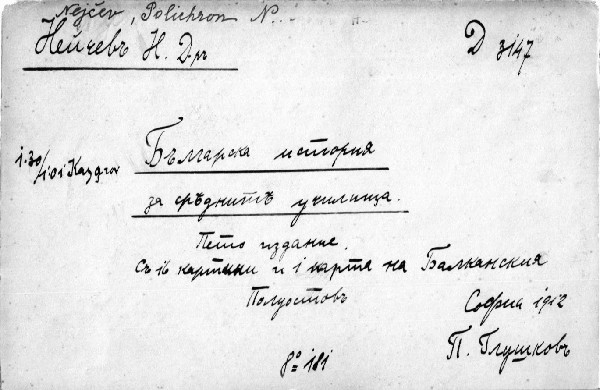 Nejčev, Polichron N.
Нейчевъ Н. Д-ръ
D 3147
i.30/101
Българска история
за срѣднитѣ училища.
Пето издание.
Съ 16 картини и 1 карта на Балканския
Полуостовъ
София 1912
П. Глушковъ
8° 181